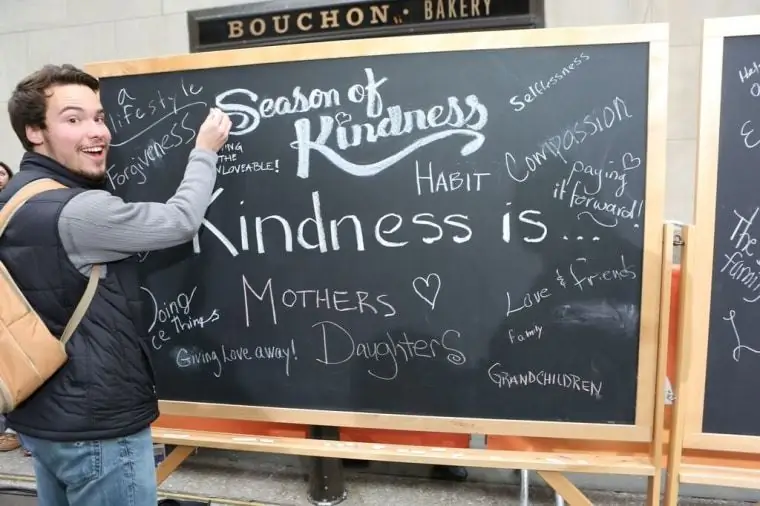 BOUCHON · BAKERY
a
lifestyle
Season of
Kindness
Selflessness
Forgiveness
THE
HABIT
Compassion
paying
it forward!
Kindness is...
Doing
Things
MOTHERS
Love & friends
family
Giving Love away!
Daughters
GRANDCHILDREN
The
family